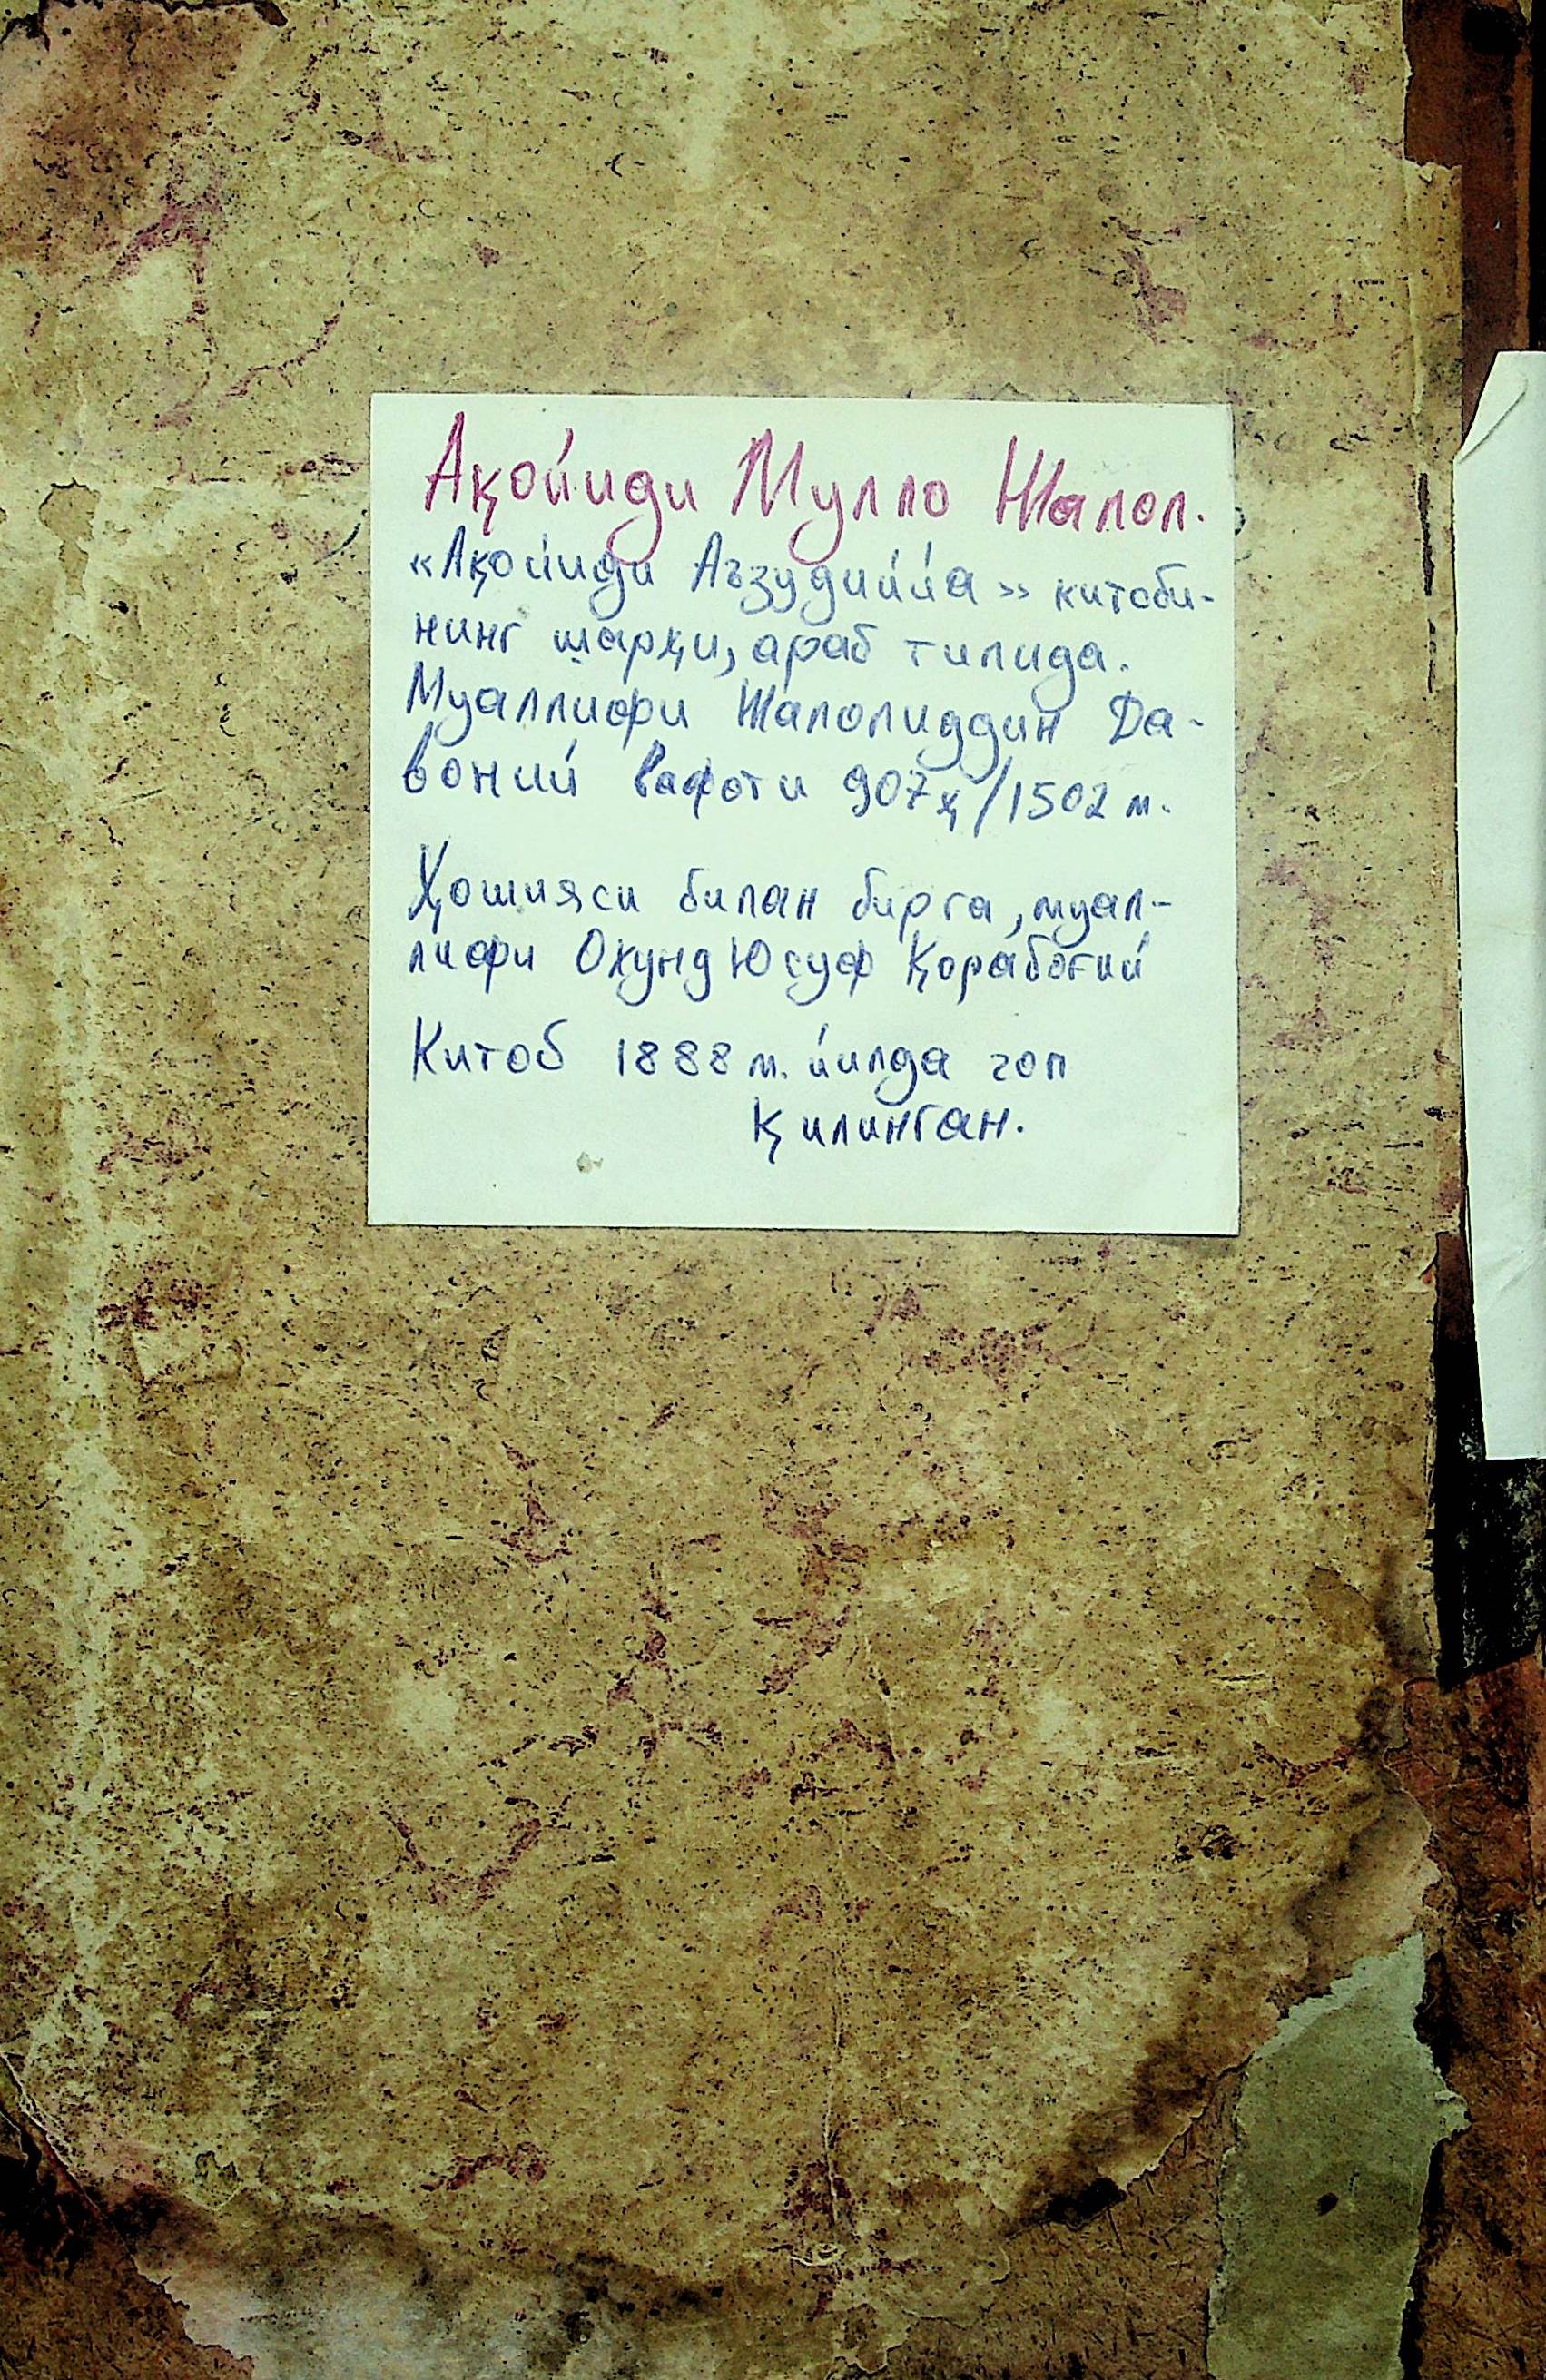 Ақойиди Мулло Жалол.
«Ақойиди Аъзудиййа» китоби-
нинг шарҳи, араб тилида.
Муаллифи Жалолиддин Да-
воний вафоти 907ҳ/1502 м.
Ҳошияси билан бирга, муал-
лифи Охунд Юсуф Қорабоғий
Китоб 1888 м. йилда чоп
қилинган.